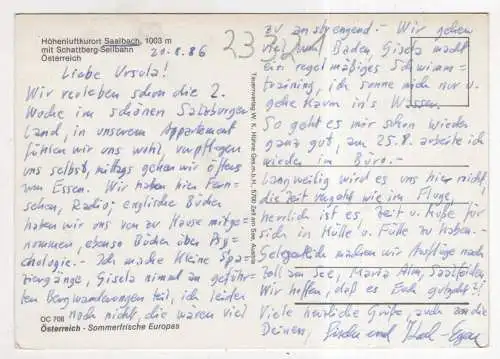 Höhenluftkurort Saalbach, 1003 m
mit Schattberg-Seilbahn
Österreich
20.8.86
Liebe Ursula!
Wir verleben schon die 2.
Woche im schönen Salzburger
Land, in unserem Appartement
fühlen wir uns wohl, verpflegen
uns selbst, mittags gehen wir öfters
zum Essen. Wir haben hier Fern=
sehen, Radio, englische Bücher
haben wir uns von zu Hause mitge=
nommen, ebenso Bücher über Psy=
chologie. - Ich mache kleine Spa=
ziergänge, Gisela nimmt an geführ=
ten Bergwanderungen teil, ich leider
noch nicht, die wären viel
OC 708
Österreich - Sommerfrische Europas
2332
zu anstrengend. - Wir gehen
viel zum Baden, Gisela macht
ein regelmäßiges Schwimm=
training, ich sonne mich nur u.
gehe kaum in's Wasser.
So geht es mir schon wieder
ganz gut, am 25.8. arbeite ich
wieder im Büro. -
Langweilig wird es uns hier nicht,
die Zeit vergeht wie im Fluge,
herrlich ist es, Zeit u. Muße für
sich in Hülle u. Fülle zu haben. -
Gelegentlich machen wir Ausflüge nach
Zell am See, Maria Alm, Saalfelden.
Wir hoffen, daß es Euch gutgeht?!
Viele herzliche Grüße, auch an die
Deinen, und